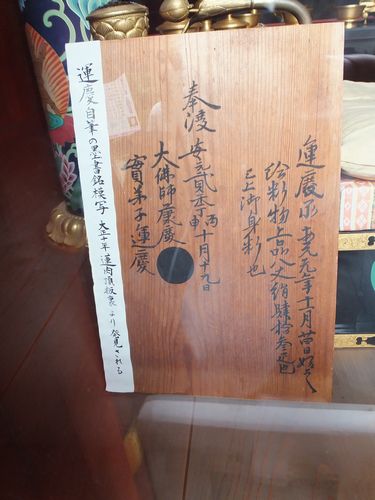 運慶承安元年十一月廿四日始之
給料物上品八丈絹肆拾参疋也
已上御身料也
奉渡 安元貳年丙申十月十九日
大佛師康慶
實弟子運慶
運慶自筆の墨書銘模写 大正十年蓮肉頂板裏より発見される